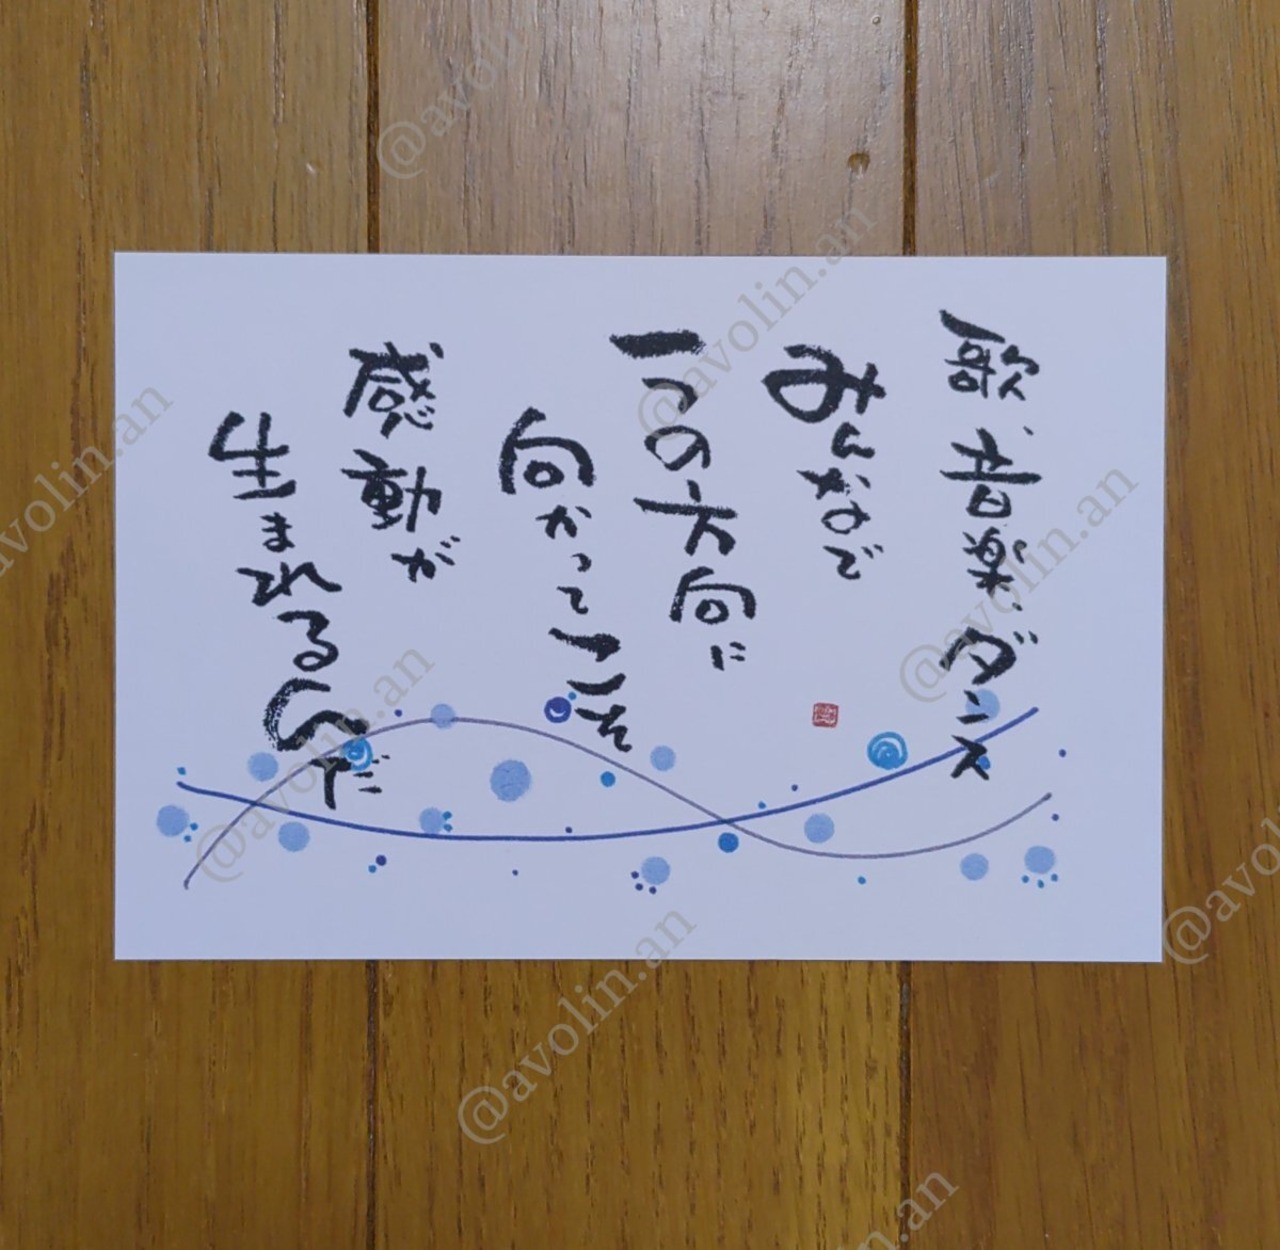 歌、音楽、ダンス
みんなで
一つの方向に
向かってこそ
感動が
生まれるんだ
@avolin.an
@avolin.an
@avolin.an
@avolin.an
@avolin.an
@avolin.an